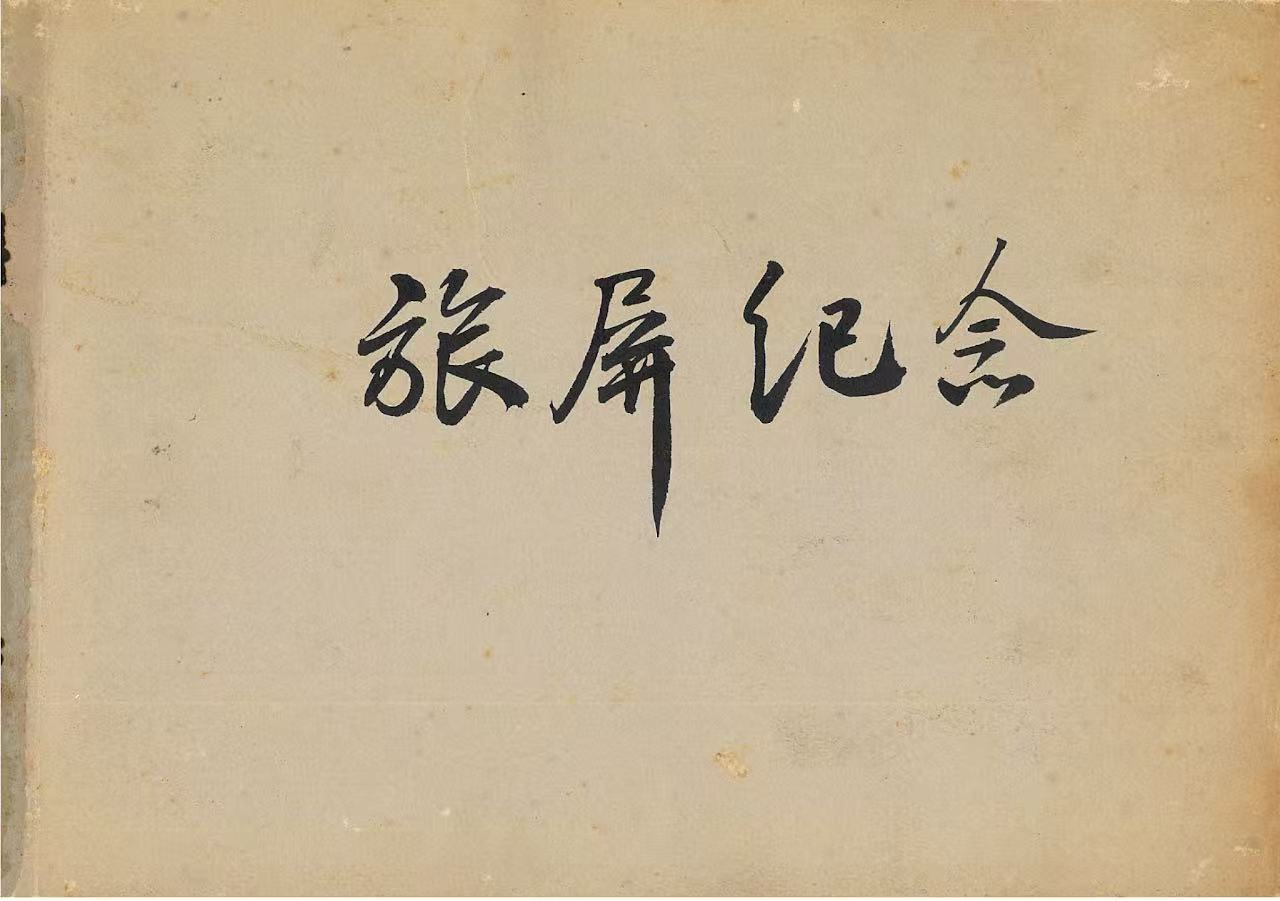 旅屏纪念